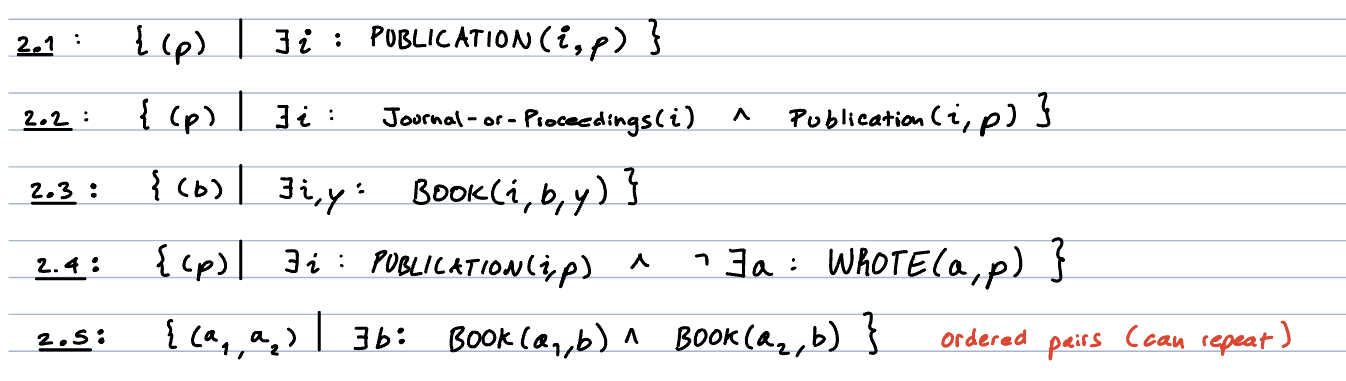 2.1 : { (p) | ∃i : PUBLICATION(i, p) }
2.2 : { (p) | ∃i : Journal-or-Proceedings(i) ∧ Publication(i, p) }
2.3 : { (b) | ∃i, y : BOOK(i, b, y) }
2.4 : { (p) | ∃i : PUBLICATION(i, p) ∧ ¬∃a : WROTE(a, p) }
2.5 : { (a₁, a₂) | ∃b : BOOK(a₁, b) ∧ BOOK(a₂, b) } ordered pairs (can repeat)